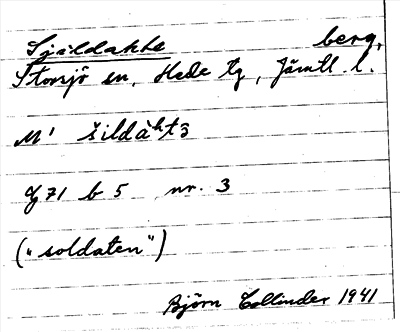 Själdakte berg,
Storsjö sn, Hede tg, Jämtl. l.
M' šildàhtᴣ
J 71 b 5 nr. 3
("soldaten")
Björn Collinder 1941